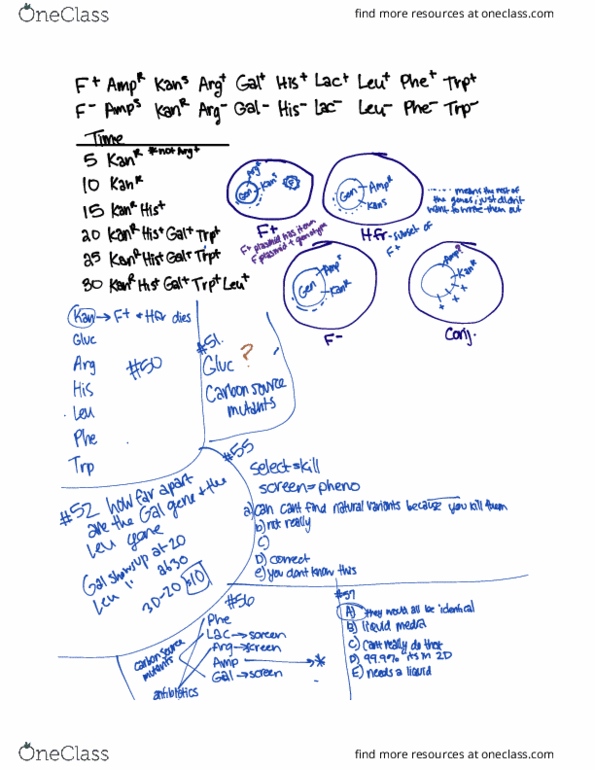 OneClass
find more resources at oneclass.com
F+ Amp^R Kan^s Arg+ Gal+ His+ Lac+ Leu+ Phe+ Trp+
F- Amp^s Kan^R Arg- Gal- His- Lac- Leu- Phe- Trp-
Time
5 Kan^R *not Arg+
10 Kan^R
15 Kan^R His+
20 Kan^R His+ Gal+ Trp+
25 Kan^R His+ Gal+ Trp+
30 Kan^R His+ Gal+ Trp+ Leu+
Arg+
Gen
Kan^s
F
F+
F+ plasmid has its own
F plasmid + genotype
Gen
Amp^R
Kan^s
Hfr - subset of
F+
..... means the rest of
the genes, i just didn't
want to write them out
Gen
Amp^s
Kan^R
F-
Amp^R
Kan^R
+ + + +
Conj.
Kan → F+ + Hfr dies
Gluc
Arg
His
Leu
Phe
Trp
#50
#51.
Gluc ?
Carbon source
mutants
#52 how far apart
are the Gal gene + the
Leu gene
Gal show up at 20
Leu " at 30
30-20 10
#55
select = kill
screen = pheno
a) can cant find natural variants because you kill them
b) not really
c)
D) correct
e) you dont know this
#56
Phe
Lac → screen
Arg → screen
Amp → *
Gal → screen
carbon source
mutants
antibiotics
#57
A) they would all be identical
B) liquid media
C) cant really do that
D) 99.9% its in 2D
E) needs a liquid
OneClass
find more resources at oneclass.com